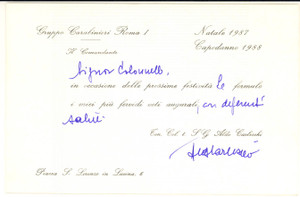 Gruppo Carabinieri Roma I
Natale 1987
Capodanno 1988
Il Comandante
Signor Colonnello,
in occasione delle prossime festività Le formulo
i vivi più fervidi voti augurali, con deferenti
saluti
Ten. Col. t. S.G. Aldo
Piazza S. Lorenzo in Lucina, 6